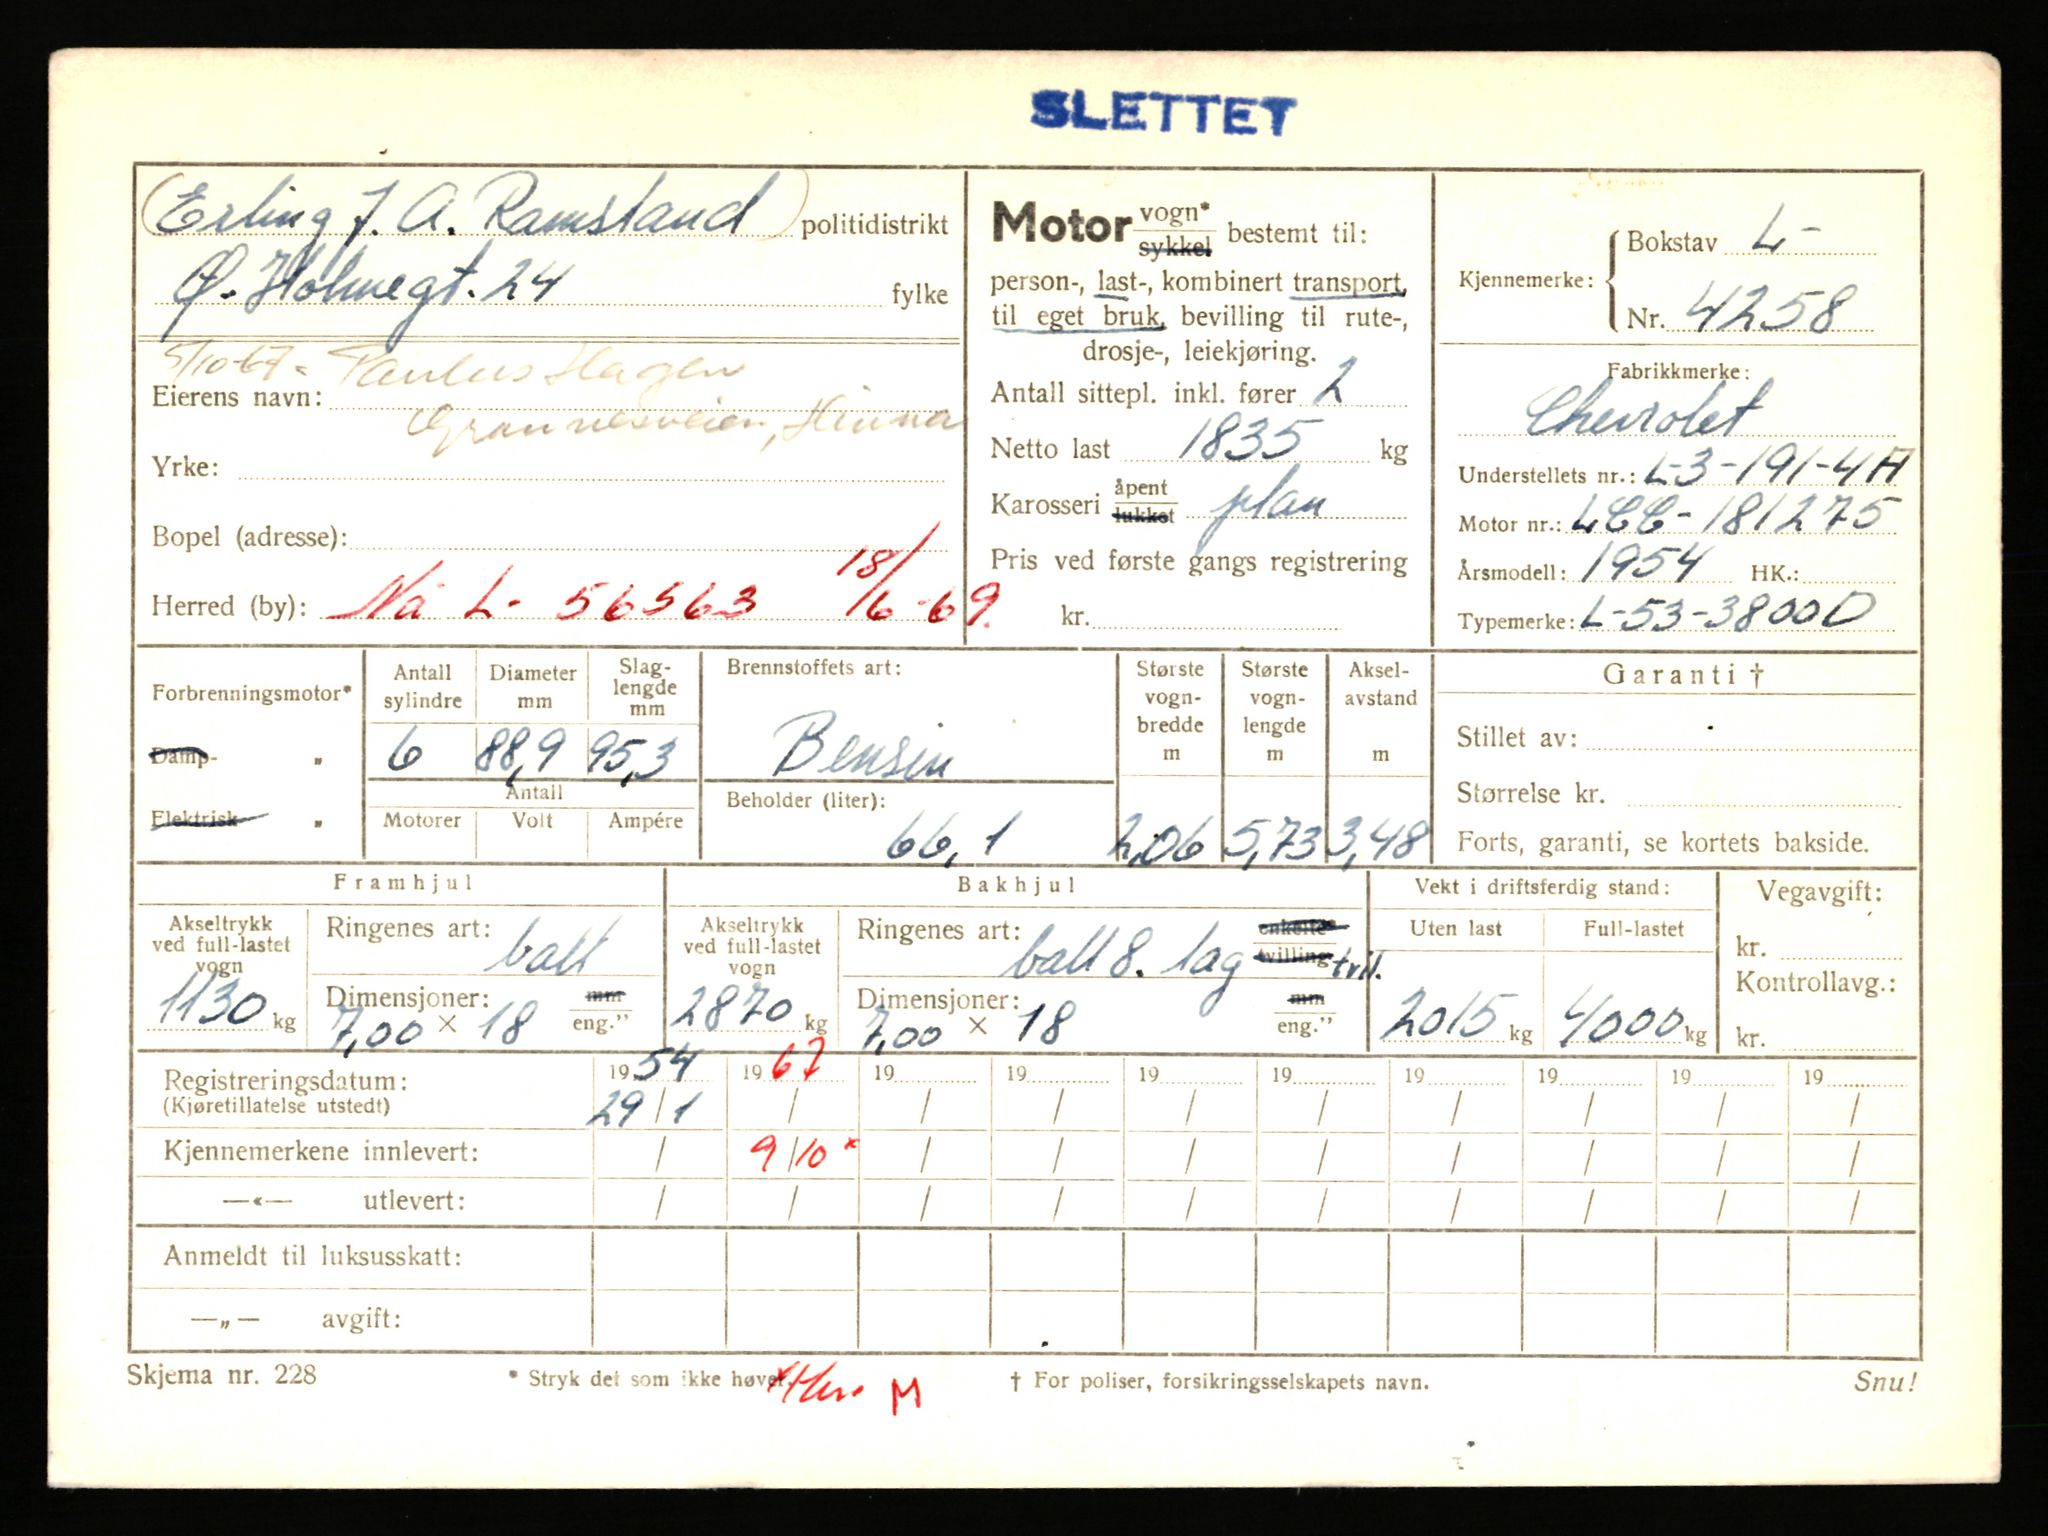 SLETTET
Erling J. A. Ramsland politidistrikt
Ø. Holmegt. 24 fylke
5/10-67. Paulus Hagen
Eierens navn:
Grannesveien, Hinna
Yrke:
Bopel (adresse):
Herred (by): Nå L- 56563 18/6-69.
Motor vogn* sykkel bestemt til:
person-, last-, kombinert transport,
til eget bruk, bevilling til rute-,
drosje-, leiekjøring.
Antall sittepl. inkl. fører 2
Netto last 1835 kg
Karosseri åpent lukket plan
Pris ved første gangs registrering
kr.
Kjennemerke: Bokstav L-
Nr. 4258
Fabrikkmerke:
Chevrolet
Understellets nr.: L-3-191-4H
Motor nr.: LCC-181275
Årsmodell: 1954 HK.:
Typemerke: L-53-3800D
Forbrenningsmotor*
Damp- „
Elektrisk „
Antall sylindre Diameter mm Slag-lengde mm
6 88,9 95,3
Antall
Motorer Volt Ampére
Brennstoffets art:
Bensin
Beholder (liter):
66,1
Største vogn-bredde m Største vogn-lengde m Aksel-avstand m
2,06 5,73 3,48
Garanti †
Stillet av:
Størrelse kr.
Forts, garanti, se kortets bakside.
Framhjul
Akseltrykk ved full-lastet vogn
1130 kg
Ringenes art: ball
Dimensjoner: mm
7,00 × 18 eng.”
Bakhjul
Akseltrykk ved full-lastet vogn
2870 kg
Ringenes art: ball 8. lag enkelte tvilling tvill.
Dimensjoner: mm
7,00 × 18 eng.”
Vekt i driftsferdig stand:
Uten last Full-lastet
2015 kg 4000 kg
Vegavgift:
kr.
Kontrollavg.:
kr.
Registreringsdatum: 1954 1967 19 19 19 19 19 19 19 19
(Kjøretillatelse utstedt) 29/1 / / / / / / / / /
Kjennemerkene innlevert: / 9/10* / / / / / / / /
—«— utlevert: / / / / / / / / / /
Anmeldt til luksusskatt:
—„— avgift:
Skjema nr. 228 * Stryk det som ikke høver. M † For poliser, forsikringsselskapets navn. Snu!